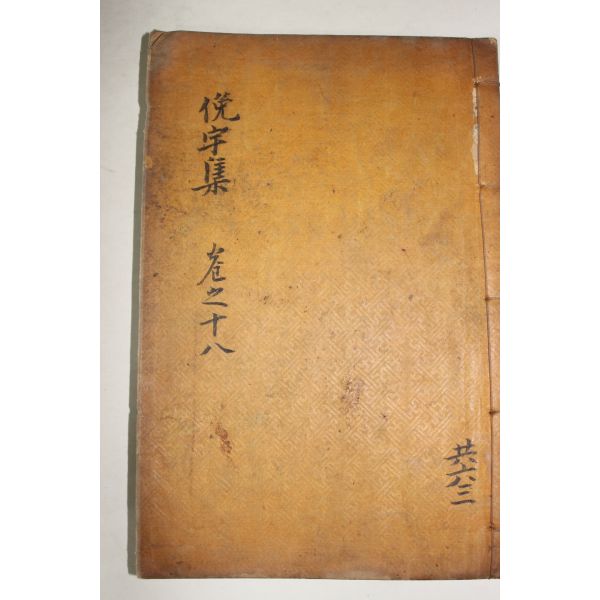 俛宇集 卷之十八
共六三